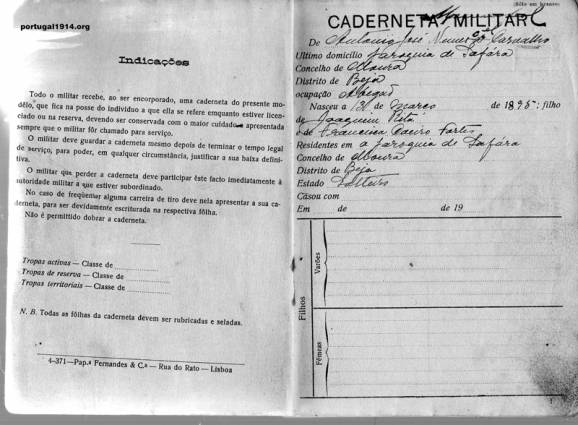 portugal1914.org
Indicações
Todo o militar recebe, ao ser encorporado, uma caderneta do presente mo-
dêlo, que fica na posse do indivíduo a que ela se refere enquanto estiver licen-
ciado ou na reserva, devendo ser conservada com o maior cuidado e apresentada
sempre que o militar fôr chamado para serviço.
O militar deve guardar a caderneta mesmo depois de terminar o tempo legal
de serviço, para poder, em qualquer circunstância, justificar a sua baixa defini-
tiva.
O militar que perder a caderneta deve participar êste facto imediatamente à
autoridade militar a que estiver subordinado.
No caso de freqüentar alguma carreira de tiro deve nela apresentar a sua ca-
derneta, para ser devidamente escriturada na respectiva fôlha.
Não é permittido dobrar a caderneta.
Tropas activas — Classe de
Tropas de reserva — Classe de
Tropas territoriais — Classe de
N. B. Todas as fôlhas da caderneta devem ser rubricadas e seladas.
4-371—Pap.ª Fernandes & C.ª — Rua do Rato — Lisboa
(Sêlo em branco)
CADERNETA MILITAR
De António José Nunes Carvalho
Ultimo domicílio Paroquia de Safára
Concelho de Moura
Distrito de Beja
ocupação
Nasceu a 13 de Março de 1895: filho
de Joaquim Rita
e de Francisca Fortes
Residentes em a paroquia de Safára
Concelho de Moura
Distrito de Beja
Estado Solteiro
Casou com
Em de de 19
Filhos
Varões
Fêmeas